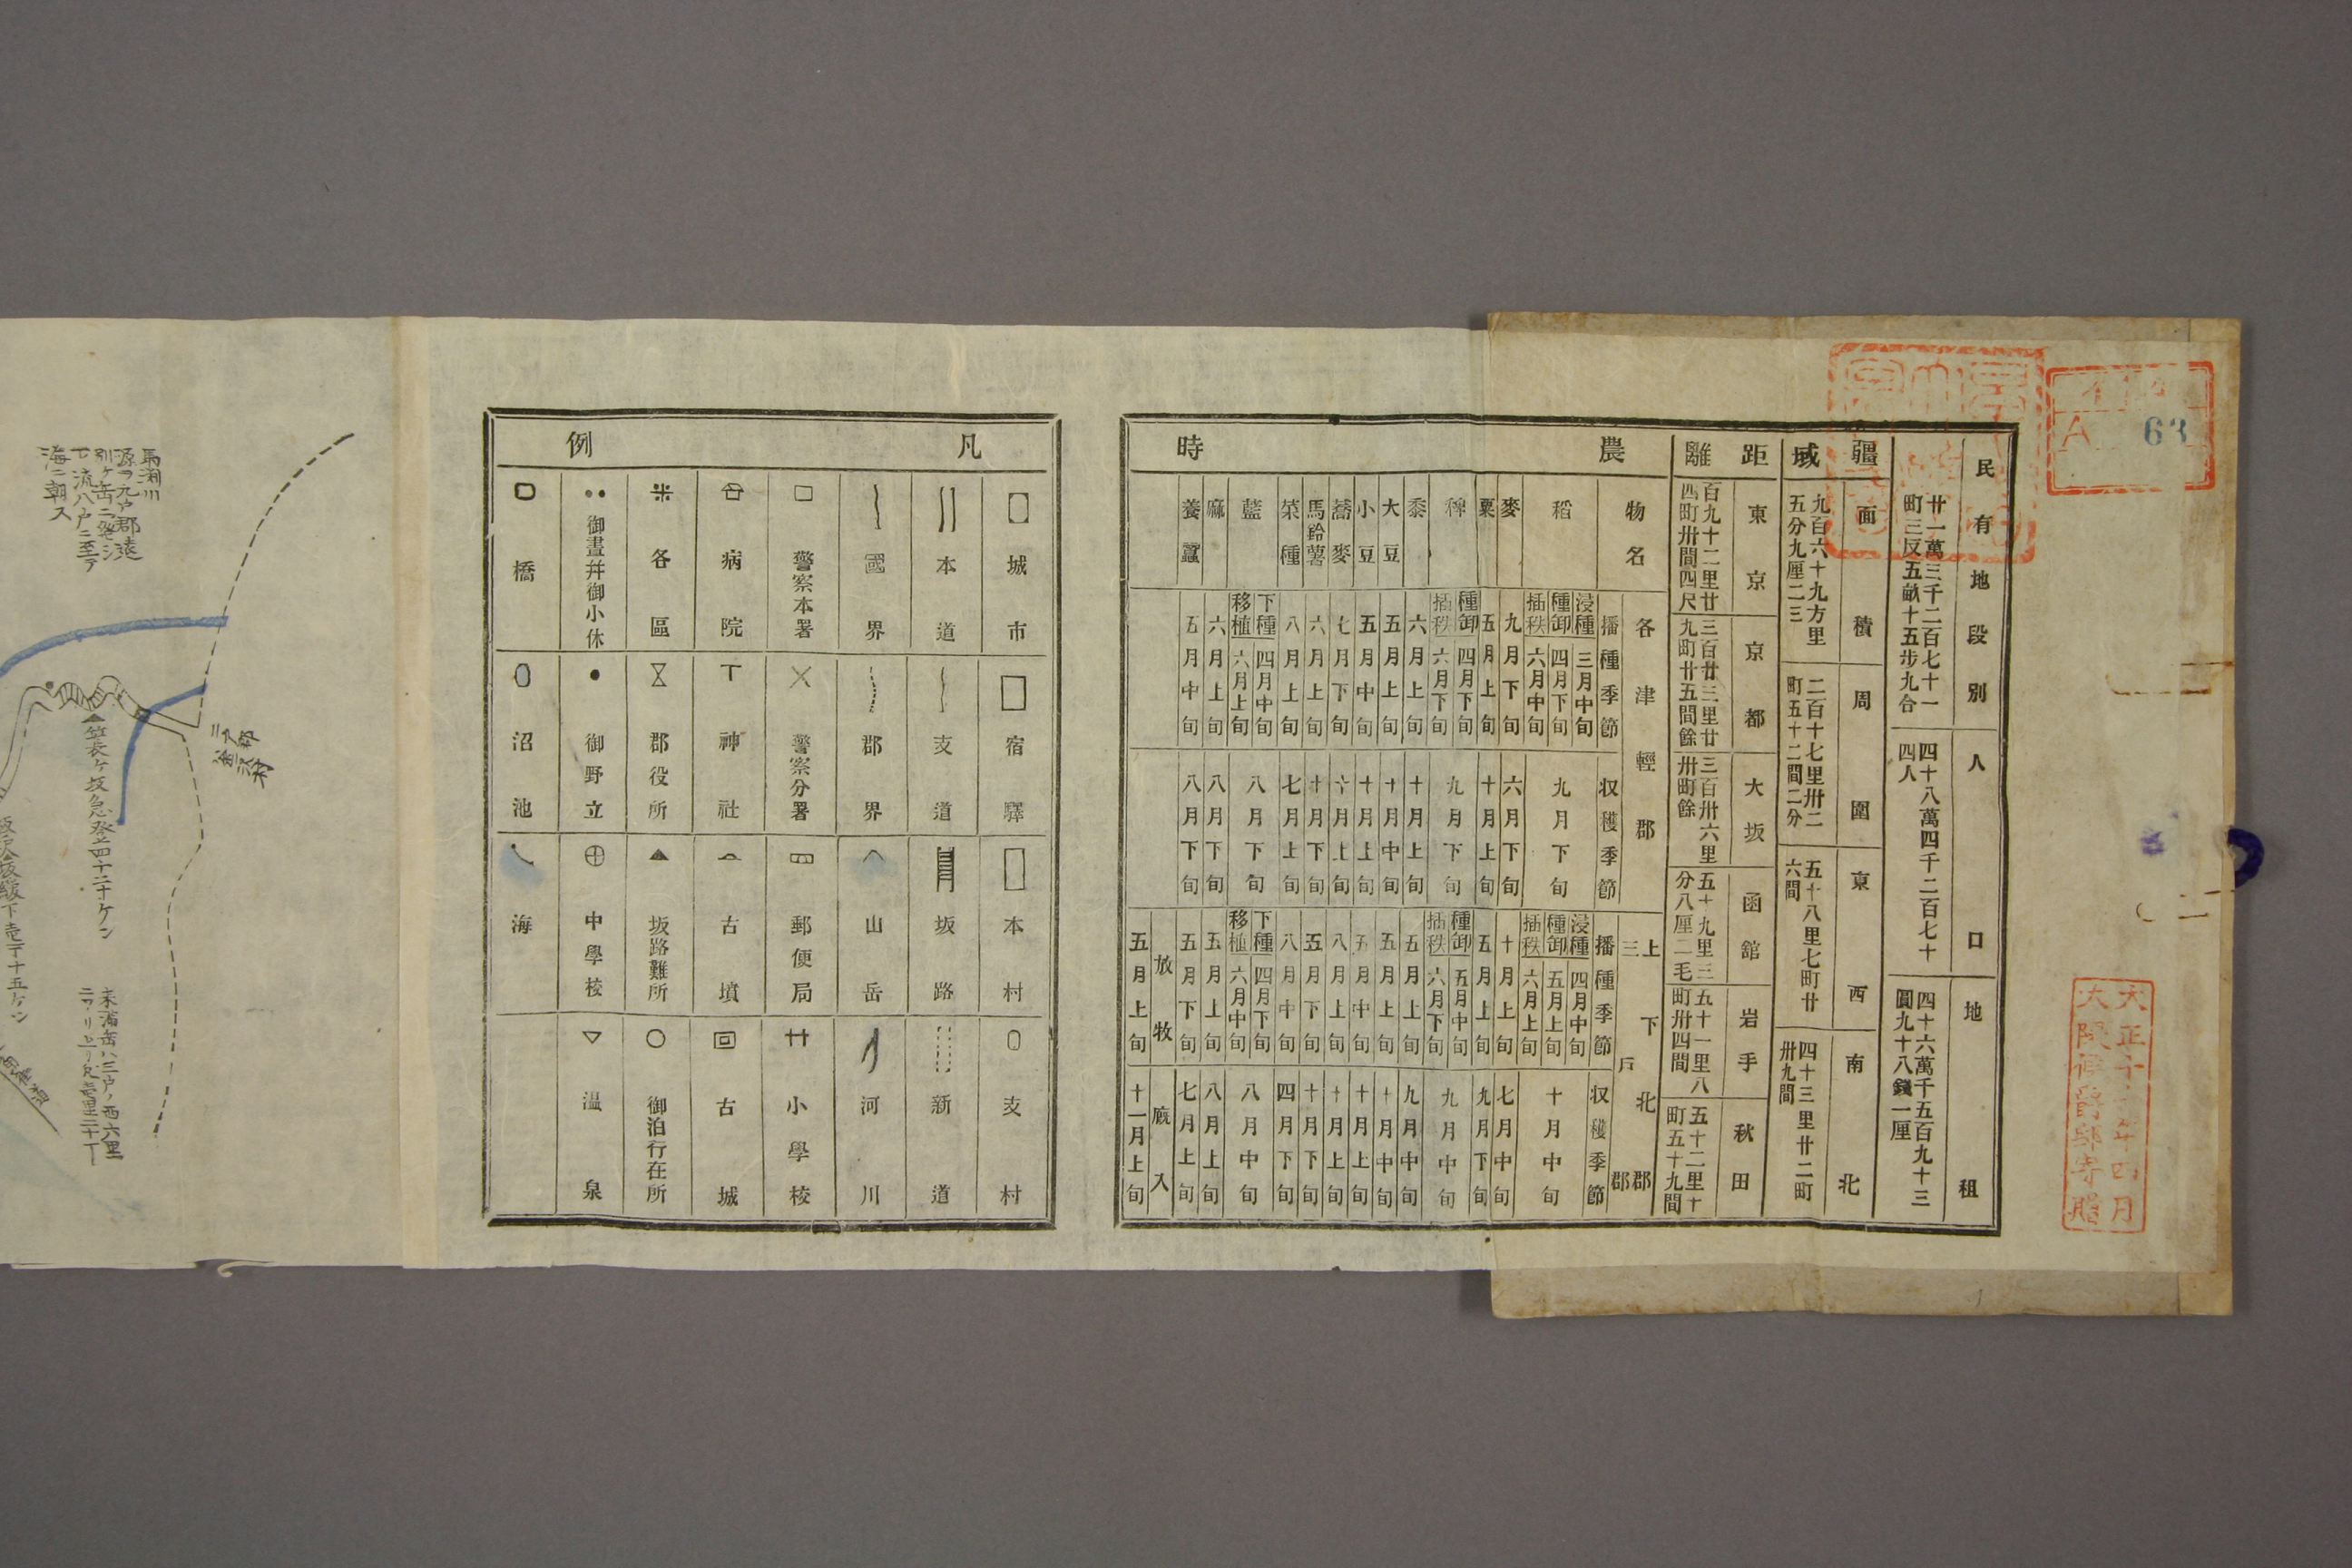 民有地段別
廿一萬三千二百七十一
町三反五畝十五步九合
人口
四十八萬四千二百七十
四人
地租
四十六萬千五百九十三
圓九十八錢一厘
疆域
面積
九百六十九方里
五分九厘二三
周圍
二百十七里卅二
町五十二間二分
東西
五十八里七町廿
六間
南北
四十三里廿二町
卅九間
距離
東京
百九十二里廿
四町卅間四尺
京都
三百廿三里廿
九町廿五間餘
大坂
三百卅六里
卅町餘
函館
五十九里三
分八厘二毛
岩手
五十一里八
町卅四間
秋田
五十二里十
町五十九間
農時
物名
稻
麥
粟
稗
黍
大豆
小豆
蕎麥
馬鈴薯
菜種
藍
麻
養蠶
各津輕郡
播種季節
浸種 三月中旬
種卸 四月下旬
插秩 六月中旬
九月下旬
五月上旬
種卸 四月下旬
插秩 六月下旬
六月上旬
五月上旬
五月中旬
七月下旬
六月上旬
八月上旬
下種 四月中旬
移植 六月上旬
六月上旬
五月中旬
収穫季節
九月下旬
六月下旬
十月上旬
九月下旬
十月上旬
十月中旬
十月上旬
十月上旬
十月下旬
七月上旬
八月下旬
八月下旬
八月下旬
上下北郡
三戶郡
播種季節
浸種 四月中旬
種卸 五月上旬
插秩 六月上旬
十月上旬
五月上旬
種卸 五月中旬
插秩 六月下旬
五月上旬
五月上旬
五月中旬
八月上旬
五月下旬
八月中旬
下種 四月下旬
移植 六月中旬
五月上旬
五月下旬
放牧
五月上旬
収穫季節
十月中旬
七月中旬
九月下旬
九月中旬
九月中旬
十月中旬
十月上旬
十月上旬
十月下旬
四月下旬
八月中旬
八月上旬
七月上旬
廐入
十一月上旬
凡例
城市
宿驛
本村
支村
本道
支道
坂路
新道
國界
郡界
山岳
河川
警察本署
警察分署
郵便局
小學校
病院
神社
古墳
古城
各區
郡役所
坂路難所
御泊行在所
御晝幷御小休
御野立
中學校
溫泉
橋
沼池
海
63
馬淵川
海ニ朝ス